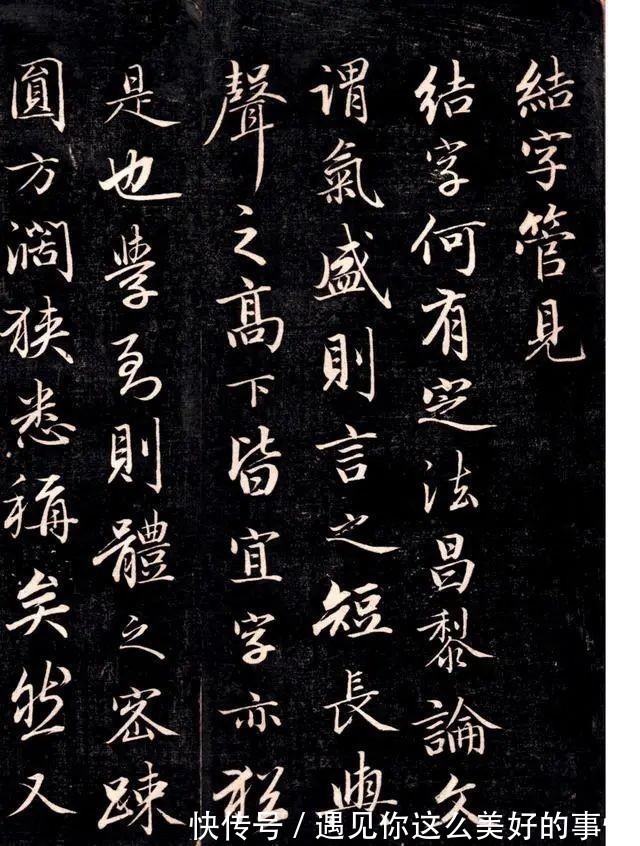 結字管見
結字何有定法昌黎論文
謂氣盛則言之短長與
聲之髙下皆宜字亦猶
是也學到則體之密踈
圓方濶狹悉稱矣然又
快传号 / 遇见你这么美好的事